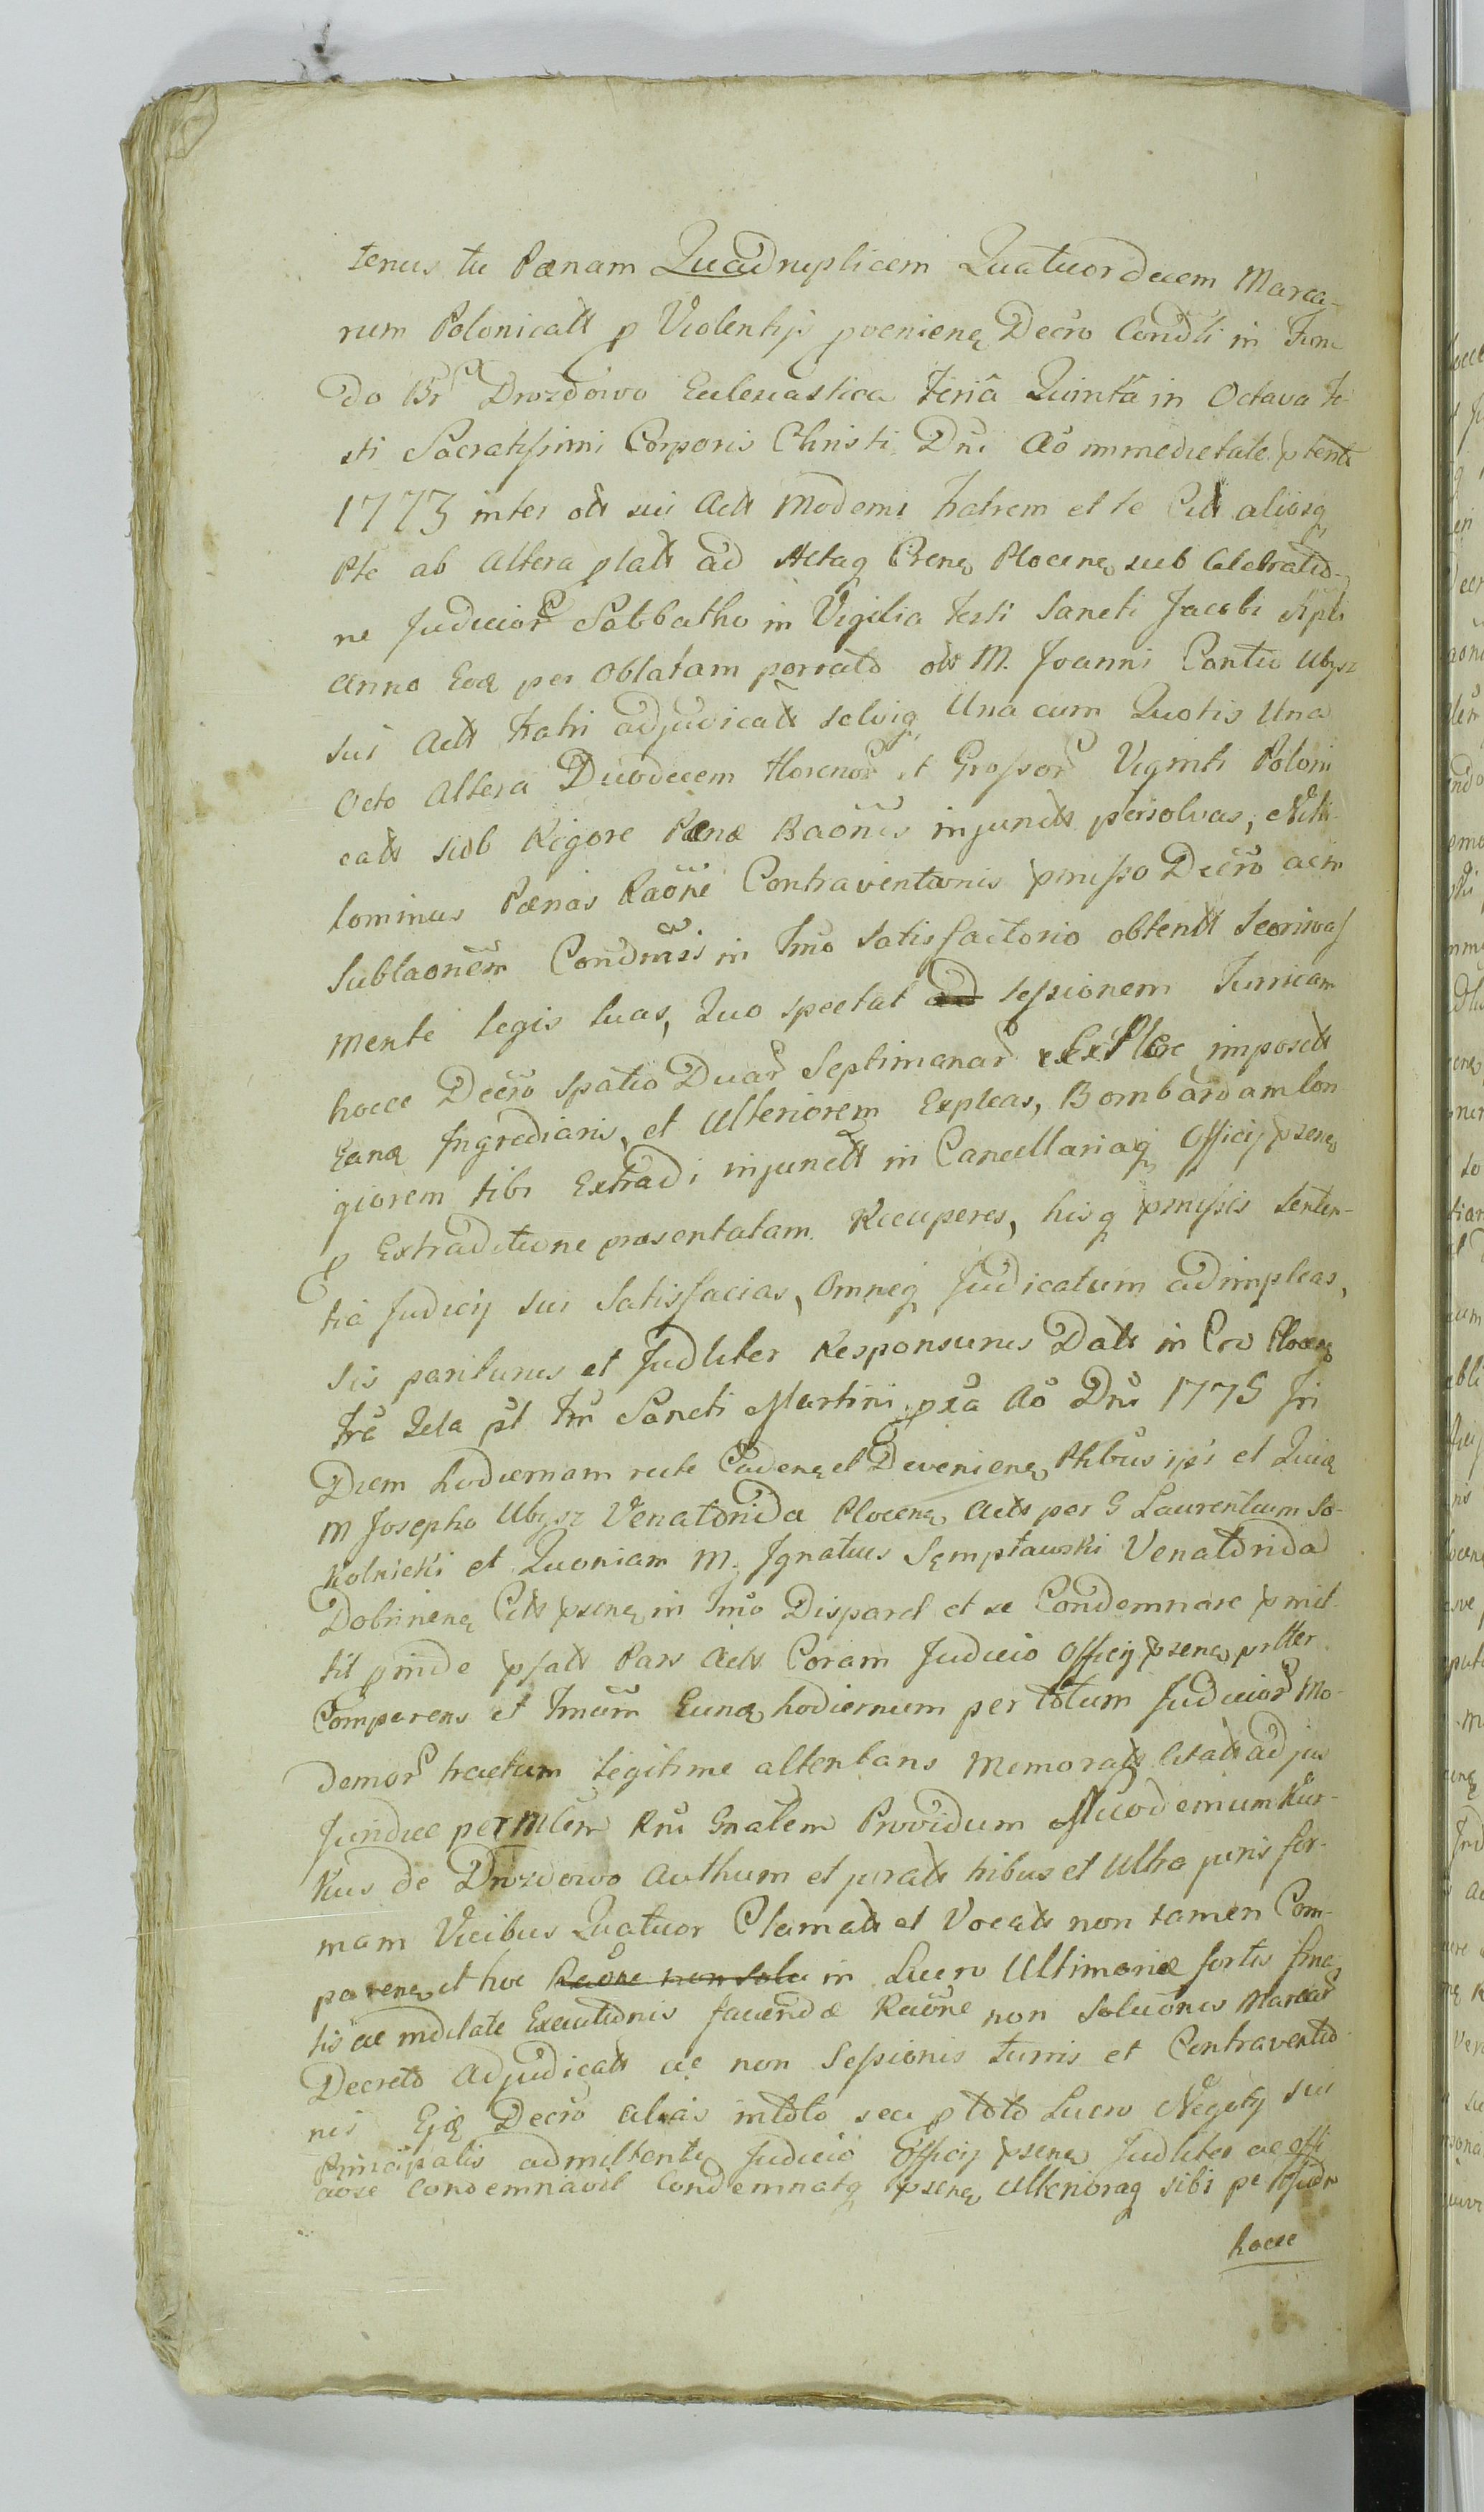 tenus tu Pænam Quadruplicem Quatuordecem Marca-
rum Polonicalt p Violentijs pvenienę Decro Condti in Fun-
do Br Drozdowo Ecclesiastica Feria Quinta in Octava Fe-
sti Sacratissimi Corporis Christi Dni Ao immediate ptento
1773 inter ott sui Actt Moderni Fratrem et te Citt aliosq
Pte ab altera platt ad Actaq Prenę Plocenę sub Celebratio-
ne Judicior Sabbatho in Vigilia Festi Sancti Jacobi Apli
Anno Eoq per Oblatam porrato ott M. Joanni Cantio Ubysz
sui Actt Fratri adjudicatt solvię Una cum Quotis Una
Octo Altera Duodecem florenor et Grossor Viginti Poloni
catt sub Rigore Pænæ Baonis injunctt persolvas, Nihi-
lominus Pænas Raone Contraventionis pmisso Decro acin
Sublaonem Condmis in Tmo Satisfactorio obtentt Seoriva
mente legis luas, Quo spectat ad sessionem Turricam
hocce Decro spatio Duar Septimanar ex Plore imposett
Eanq Ingrediaris, et Ulteriorem Expleas, Bombardam lon
giorem tibi Extradi injunctt in Cancellariaq Officij psenę
p Extraditione præsentatam Recuperes, hisq pmissis Senten-
tiæ Judicij sui Satisfacias, Omneq Judicatum adimpleas,
Sis pariturus et Judliter Responsurus Datt in Cro Plocenę
Fra 2da pt Fm Sancti Martini pxa Ao Dni 1775 In
Diem hodiernam recte Cadenę et Devenienę Phbus ipi et Quiq
M Josepho Ubysz Venatorida Plocenę Actt per G Laurentium So-
kolnicki et Quoniam M. Ignatius Sęmpławski Venatorida
Dobrinenę Citt psenę in Tmo Disparet et se Condemnare pmit-
tit pinde psatt Pars Actt Coram Judicio Officij psenę prtter
Comparens et Tmum Eunq hodiernum per totum Judicior Mo-
demor tractum legitime attentans Memoratt Citatt ad jus
Juridice perMlem Rni Gnalem Providum Nicodemum Kur-
kus de Drozdowo Authum et juratt tribus et Ultra juris for-
mam Vicibus Quatuor Clamatt et Vocatt non tamen Com-
parenę et hoc Raone non Solu in Lucro Ultimariæ sortis fruc
tis ac mditate Executionis faciendæ Raone non Solutionis Marcar
Decreto Adjudicatt ac non Sessionis turris et Contraventio
nis Ejq Decro alias intoto seu p toto Lucro Negotij sui
Principalis admittente Judicio Officij psenę Judliter ac effi
caose Condemnavit Condemnatq psenę Ulterioraq sibi pe
hocce